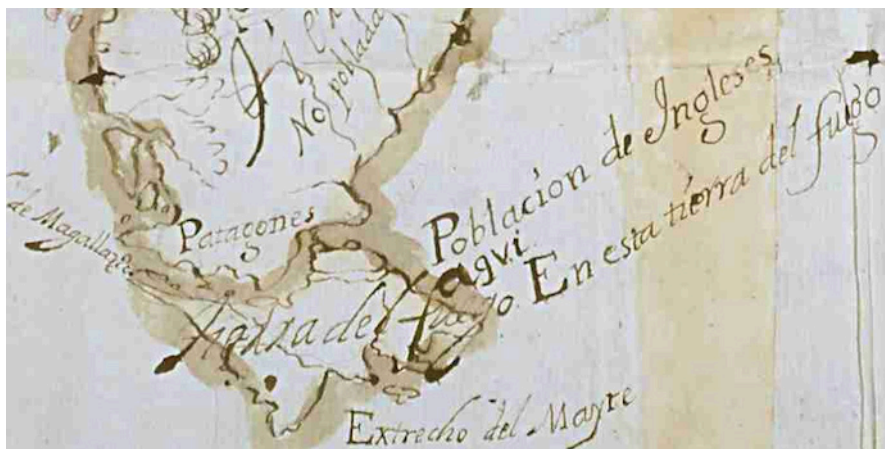 No poblada
de Magallanes
Patagones
Poblacion de Ingleses
aqvi
En esta tierra del fuego
tierra del fuego
Extrecho del Mayre